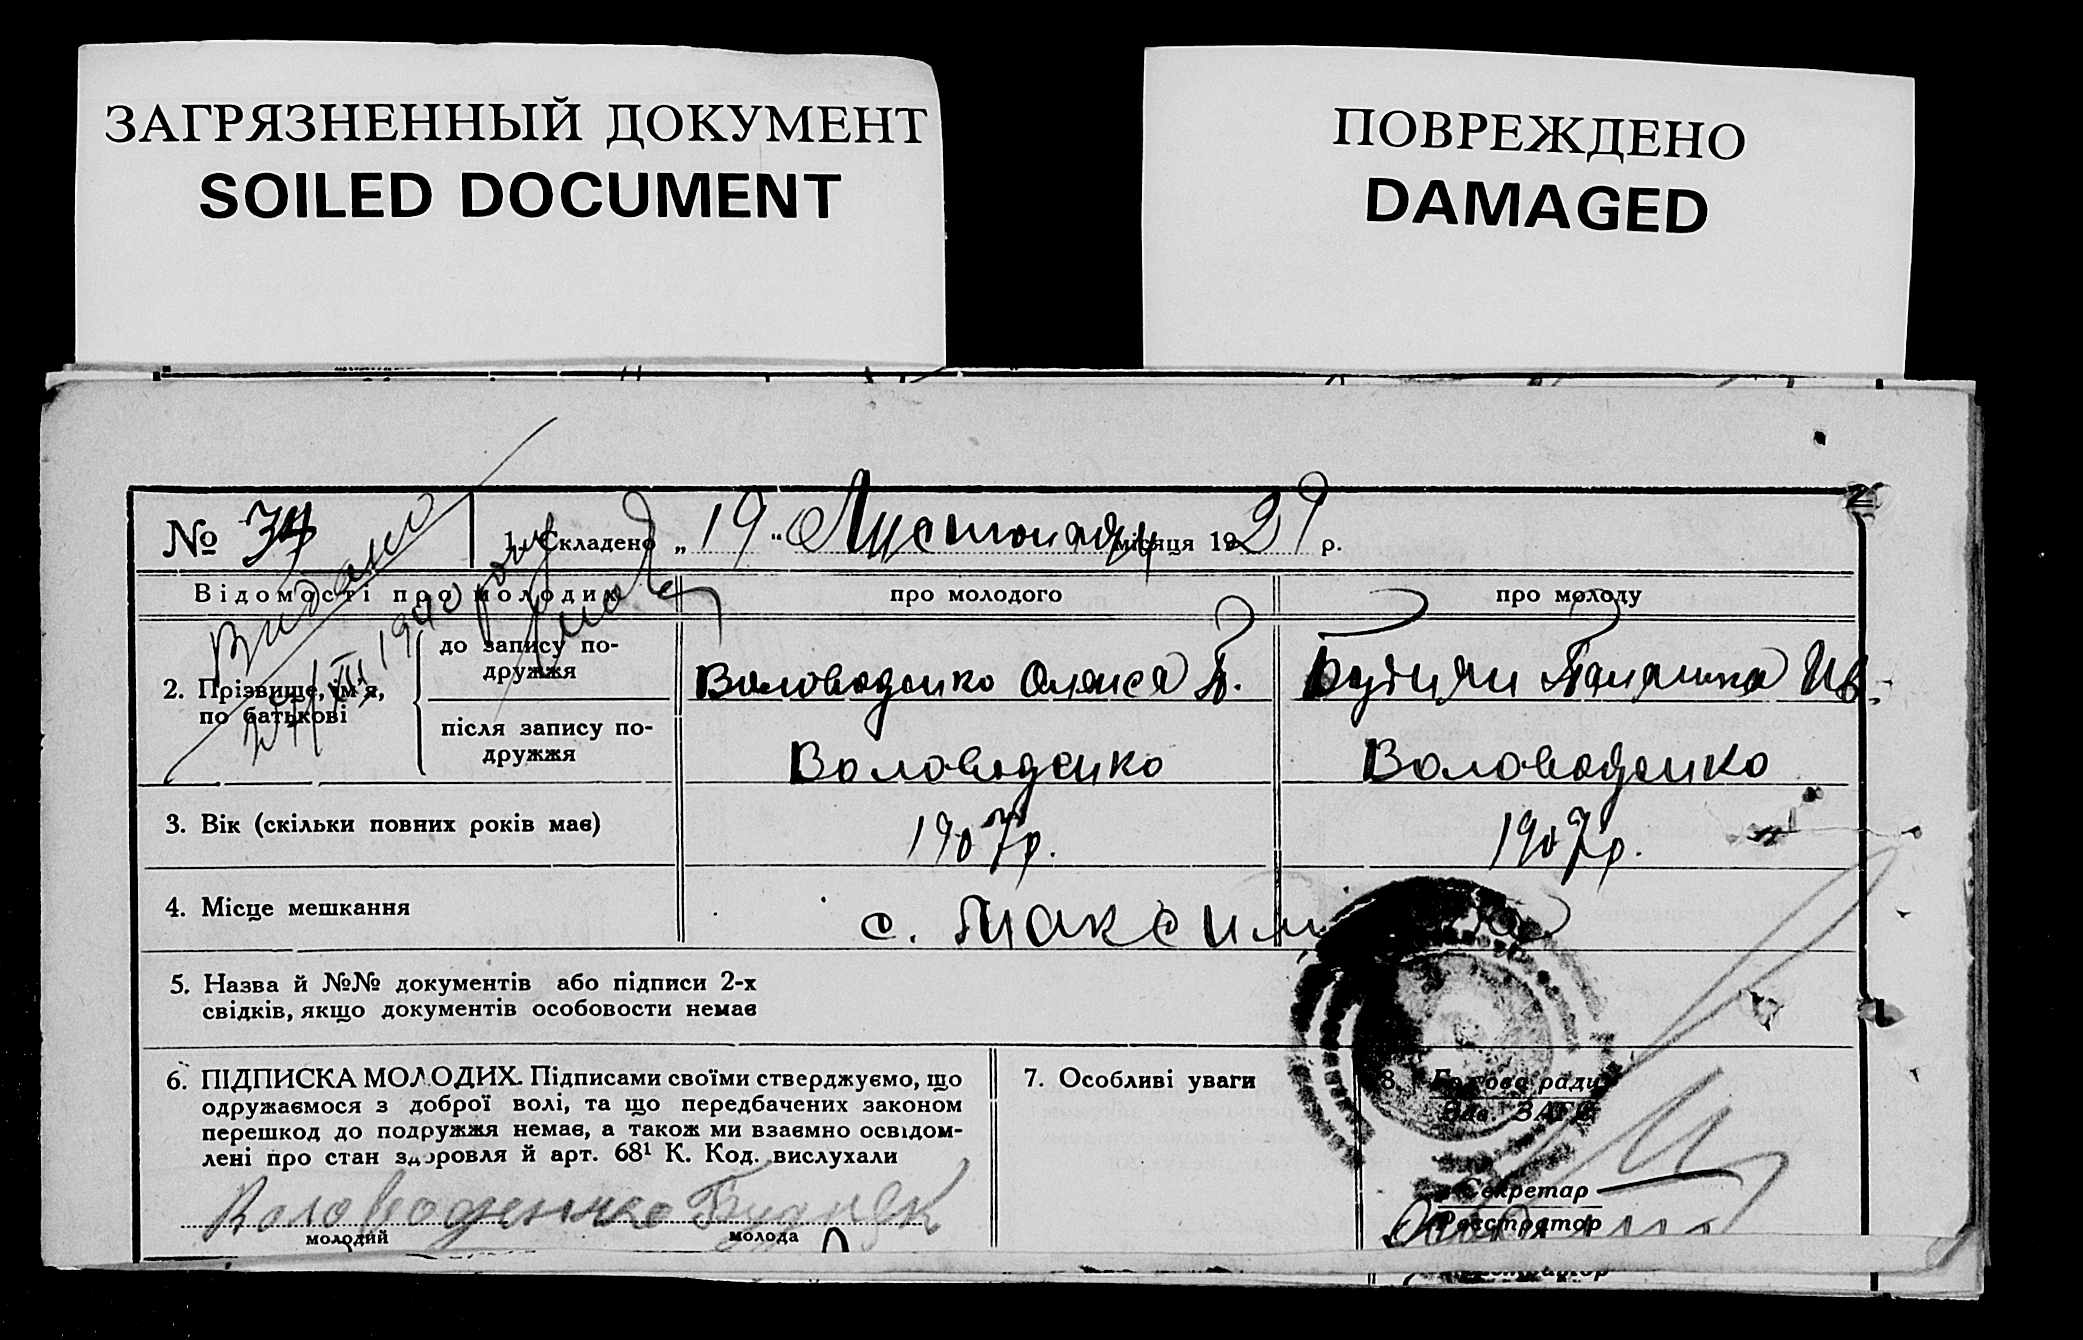 ЗАГРЯЗНЕННЫЙ ДОКУМЕНТ
SOILED DOCUMENT
ПОВРЕЖДЕНО
DAMAGED
№
1. Складено „19“ Листопаду місяця 1929 р.
Видано
1940 року
Відомості про молодих
про молодого
про молоду
2. Прізвище, ім'я, по батькові
до запису подружжя
Володенко Олекса П.
Ів.
після запису подружжя
Воловоденко
Воловоденко
3. Вік (скільки повних років має)
1907р.
1907р.
4. Місце мешкання
с.
5. Назва й №№ документів або підписи 2-х
свідків, якщо документів особовости немає
6. ПІДПИСКА МОЛОДИХ. Підписами своїми стверджуємо, що
одружаємося з доброї волі, та що передбачених законом
перешкод до подружжя немає, а також ми взаємно освідом-
лені про стан здоровля й арт. 68¹ К. Код. вислухали
Воловоденко
молодий
молода
7. Особливі уваги
8. Голова ради
Зав. ЗАГС
Секретар
Реєстратор